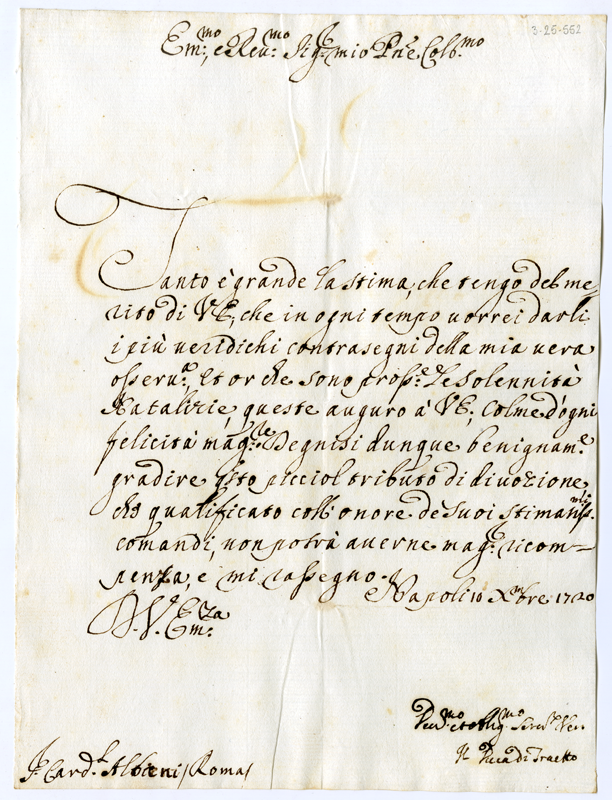 3-26-552
Em:mo, e Reu:mo Sig:r mio P̃ne Colb:mo
Tanto è grande la stima, che tengo del me,
rito di V.E., che in ogni tempo uorrei darli
i più ueridichi contrasegni della mia uera
osseru:a, et or che sono pross:e le solennità
Natalizie, queste auguro à V.E., colme d'ogni
felicità mag:re. Degnisi dunque benignam:e
gradire q̃sto picciol tributo di diuozione,
che qualificato coll'onore de suoi stimatis:mi
comandi, non potrà auerne mag:r ricom-
penza, e mi rassegno.
Napoli 10 Xmbre 1720
D. V. Em:za
Deu:mo et oblig:mo Seru:re Ver.
Il Duca di Traetto
S:r Card:l Albani / Roma /